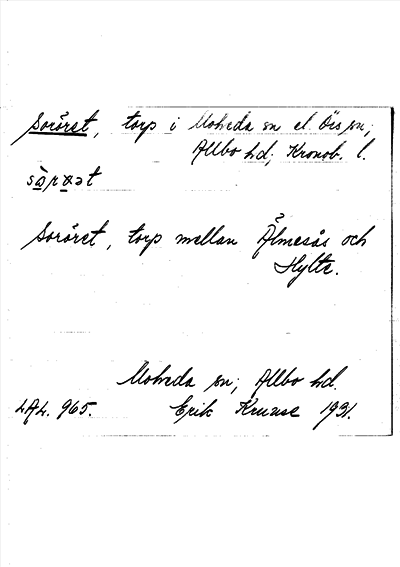 Soröret, torp i Moheda sn el. Örs sn;
Allbo hd; Kronob. l.
Soröret, torp mellan Älmesås och
Hylte.
Moheda sn; Allbo hd.
LAL. 965. Erik Kruuse 1931.